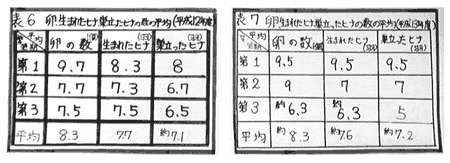 表6 卵・生まれたヒナ・巣立ったヒナの数の平均(平成12年度)
平均 卵の数(個) 生まれたヒナ(羽) 巣立ったヒナ(羽)
第1 9.7 8.3 8
第2 7.7 7.3 6.7
第3 7.5 7.5 6.5
平均 8.3 7.7 約7.1
表7 卵・生まれたヒナ・巣立ったヒナの数の平均(平成13年度)
平均 卵の数(個) 生まれたヒナ(羽) 巣立ったヒナ(羽)
第1 9.5 9.5 9.5
第2 9 7 7
第3 約6.3 約6.3 5
平均 約8.3 約7.6 約7.2